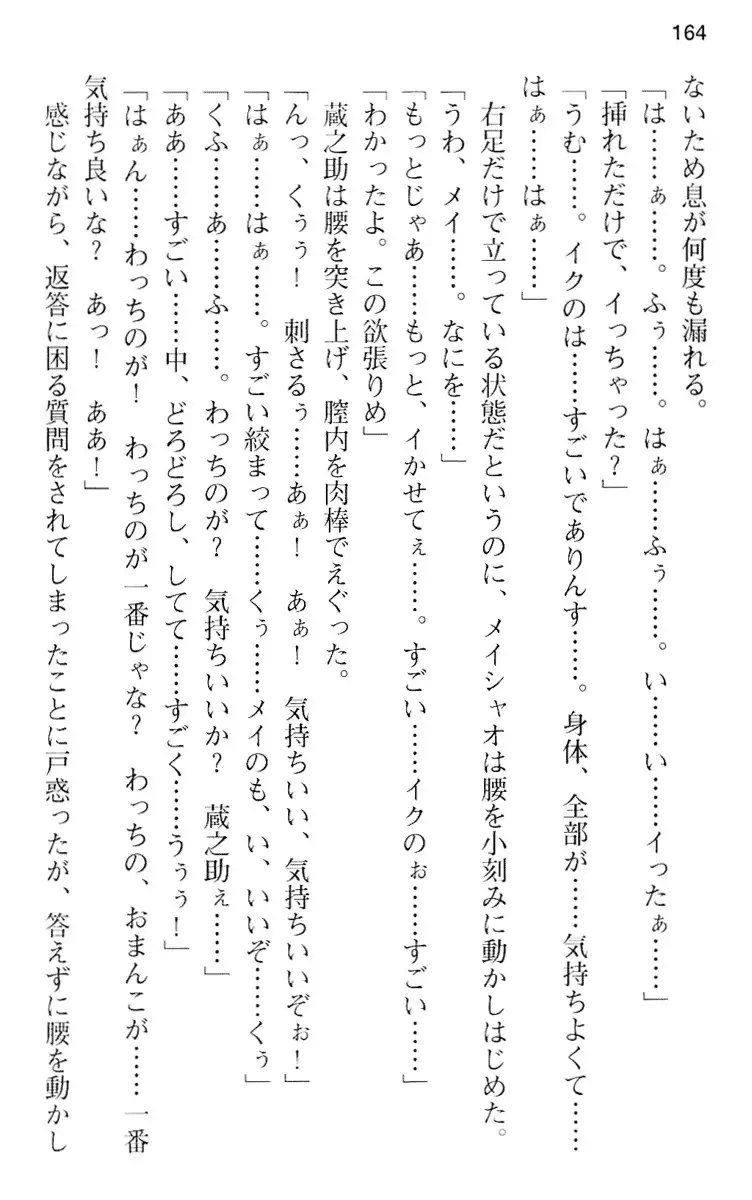 164
ないため息が何度も漏れる。
「は……ぁ……。ふぅ……。はぁ……ふぅ……。い……い……イったぁ……」
「挿れただけで、イっちゃった？」
「うむ……。イクのは……すごいでありんす……。身体、全部が……気持ちよくて……
はぁ……はぁ……」
右足だけで立っている状態だというのに、メイシャオは腰を小刻みに動かしはじめた。
「うわ、メイ……。なにを……」
「もっとじゃあ……もっと、イかせてぇ……。すごい……イクのぉ……すごい……」
「わかったよ。この欲張りめ」
蔵之助は腰を突き上げ、膣内を肉棒でえぐった。
「んっ、くぅぅ！　刺さるぅ……あぁ！　あぁ！　気持ちいい、気持ちいいぞぉ！」
「はぁ……はぁ……。すごい絞まって……くぅ……メイのも、い、いいぞ……くぅ」
「くふ……あ……ふ……。わっちのが？　気持ちいいか？　蔵之助ぇ……」
「ああ……すごい……中、どろどろし、してて……すごく……うぅぅ！」
「はぁん……わっちのが！　わっちのが一番じゃな？　わっちの、おまんこが……一番
気持ち良いな？　あっ！　ああ！」
感じながら、返答に困る質問をされてしまったことに戸惑ったが、答えずに腰を動かし